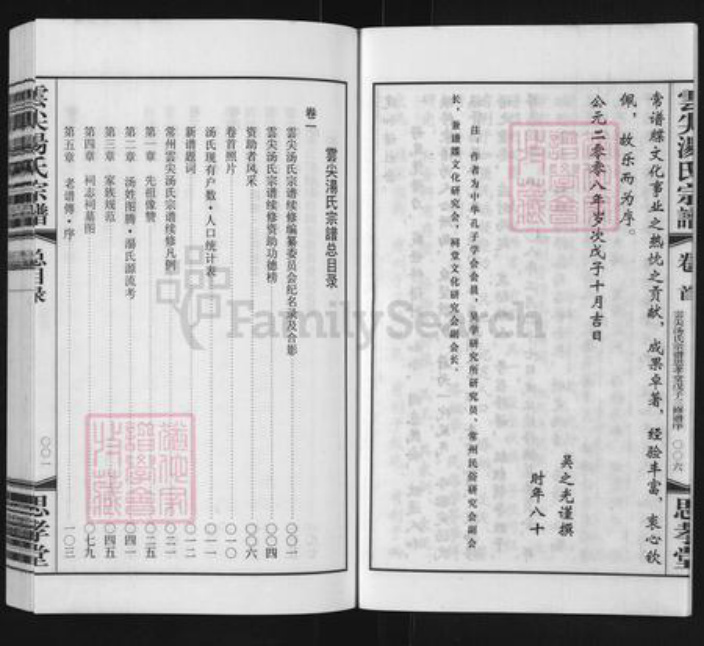 常谱牒文化事业之热忱之贡献,成果卓著,经验丰富,衷心钦
佩,故乐而为序。
公元二零零八年岁次戊子十月吉日
吴之光谨撰
时年八十
注:作者为中华孔子学会会员,吴学研究所研究员、常州民俗研究会副会
长,兼谱牒文化研究会,祠堂文化研究会副会长。
雲尖湯氏宗譜
卷首
雲尖汤氏宗谱思孝堂戊子 修谱序
〇〇六
思孝堂
雲尖湯氏宗譜总目录
卷一
雲尖汤氏宗谱续修编纂委员会纪名录及合影 〇〇一
雲尖汤氏宗谱续修资助功德榜 〇〇四
资助者风采 〇〇六
卷首照片 〇一〇
汤氏现有户数·人口统计表 〇一一
新谱题词 〇一二
常州雲尖汤氏宗谱续修凡例 〇二一
第一章 先祖像赞 〇二五
第二章 汤姓图腾·湯氏源流考 〇四一
第三章 家族规范 〇四五
第四章 祠志祠墓图 〇七九
第五章 老谱傳·序 一〇三
雲尖湯氏宗譜
总目录
〇〇一
思孝堂
FamilySearch